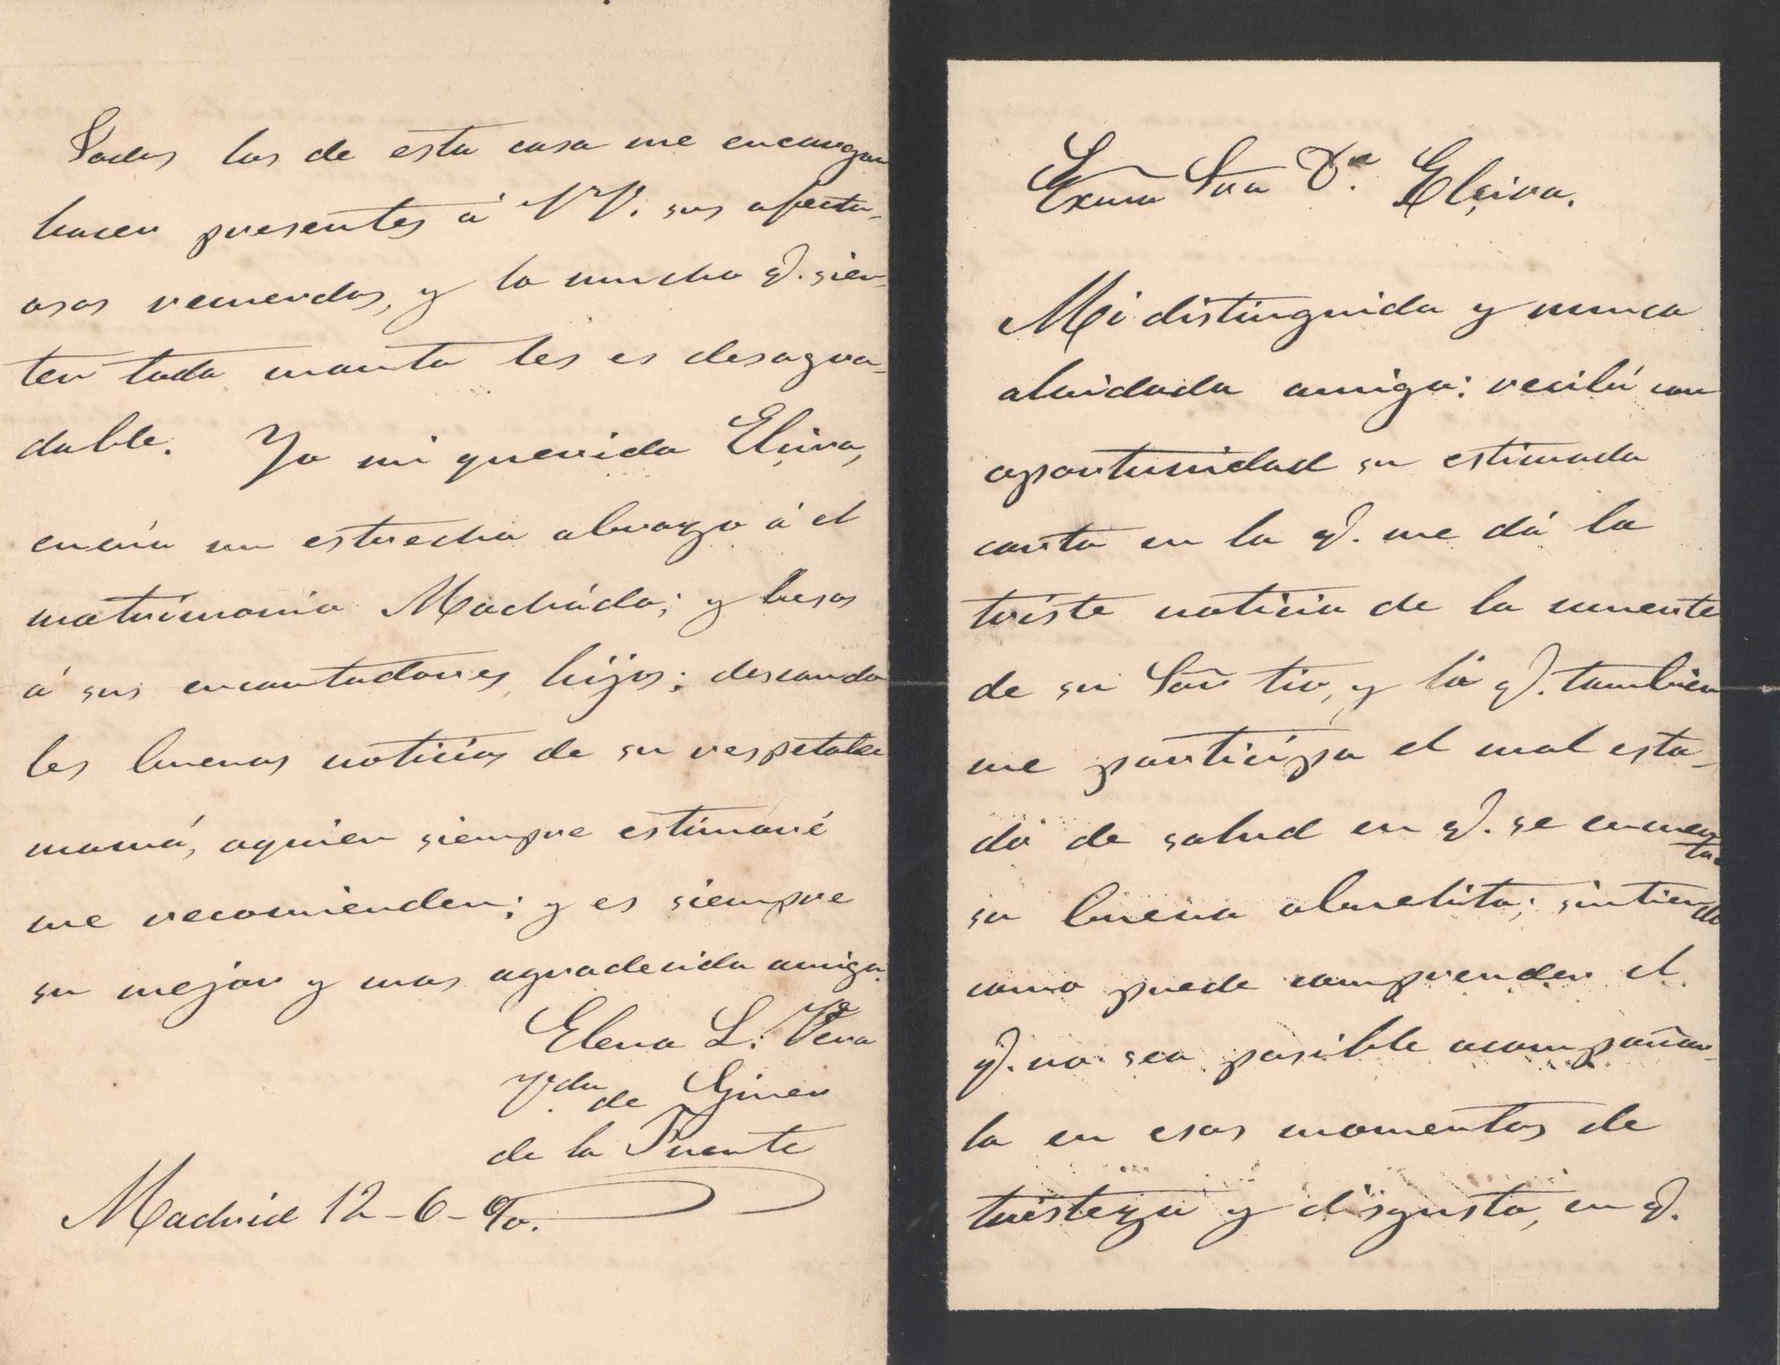 Exma Sra Dª. Elçira.
Mi distinguida y nunca
olvidada amiga: recibí con
oportunidad su estimada
carta en la q. me dá la
triste noticia de la muerte
de su Sor tio, y la q. tambien
me participa el mal esta-
do de salud en q. se encuentra
su buena abuelita; sintiendo
como puede comprender el
q. no sea posible acompañar-
la en esos momentos de
tristeza y disgusto, en q.
Todos los de esta casa me encargan
hacer presentes á VV. sus afectu-
osos recuerdos, y lo mucho q. sien-
ten todo cuanto les es desagra-
dable. Yo mi querida Elçira,
envio un estrecho abrazo á el
matrimonio Machádo; y besos
á sus encantadores hijos; deseando
les buenas noticias de su respetable
mamá, aquien siempre estimaré
me recomienden; y es siempre
su mejor y mas agradecida amiga
Elena L. Vera
Vda de Giner
de la Fuente
Madrid 12-6-90.